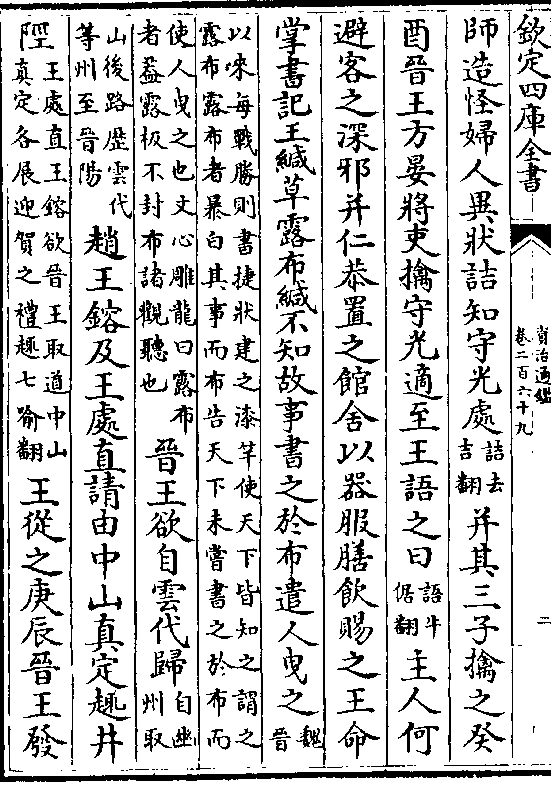 欽定四庫全書
資治通鑑
卷二百六十九
二
師造怪婦人異狀詰知守光處詰去吉翻并其三子擒之癸
酉晉王方宴將吏擒守光適至王語之曰語牛倨翻主人何
避客之深邪并仁恭置之館舍以器服膳飲賜之王命
掌書記王緘草露布緘不知故事書之於布遣人曳之魏晉
以來每戰勝則書捷狀建之漆竿使天下皆知之謂之
露布露布者暴白其事而布告天下未嘗書之於布而
使人曳之也文心雕龍曰露布者葢露板不封布諸觀聽也晉王欲自雲代歸自幽州取
山後路歷雲代等州至晉陽趙王鎔及王處直請由中山真定趣井
陘王處直王鎔欲晉王取道中山真定各展迎賀之禮趣七喻翻王從之庚辰晉王發